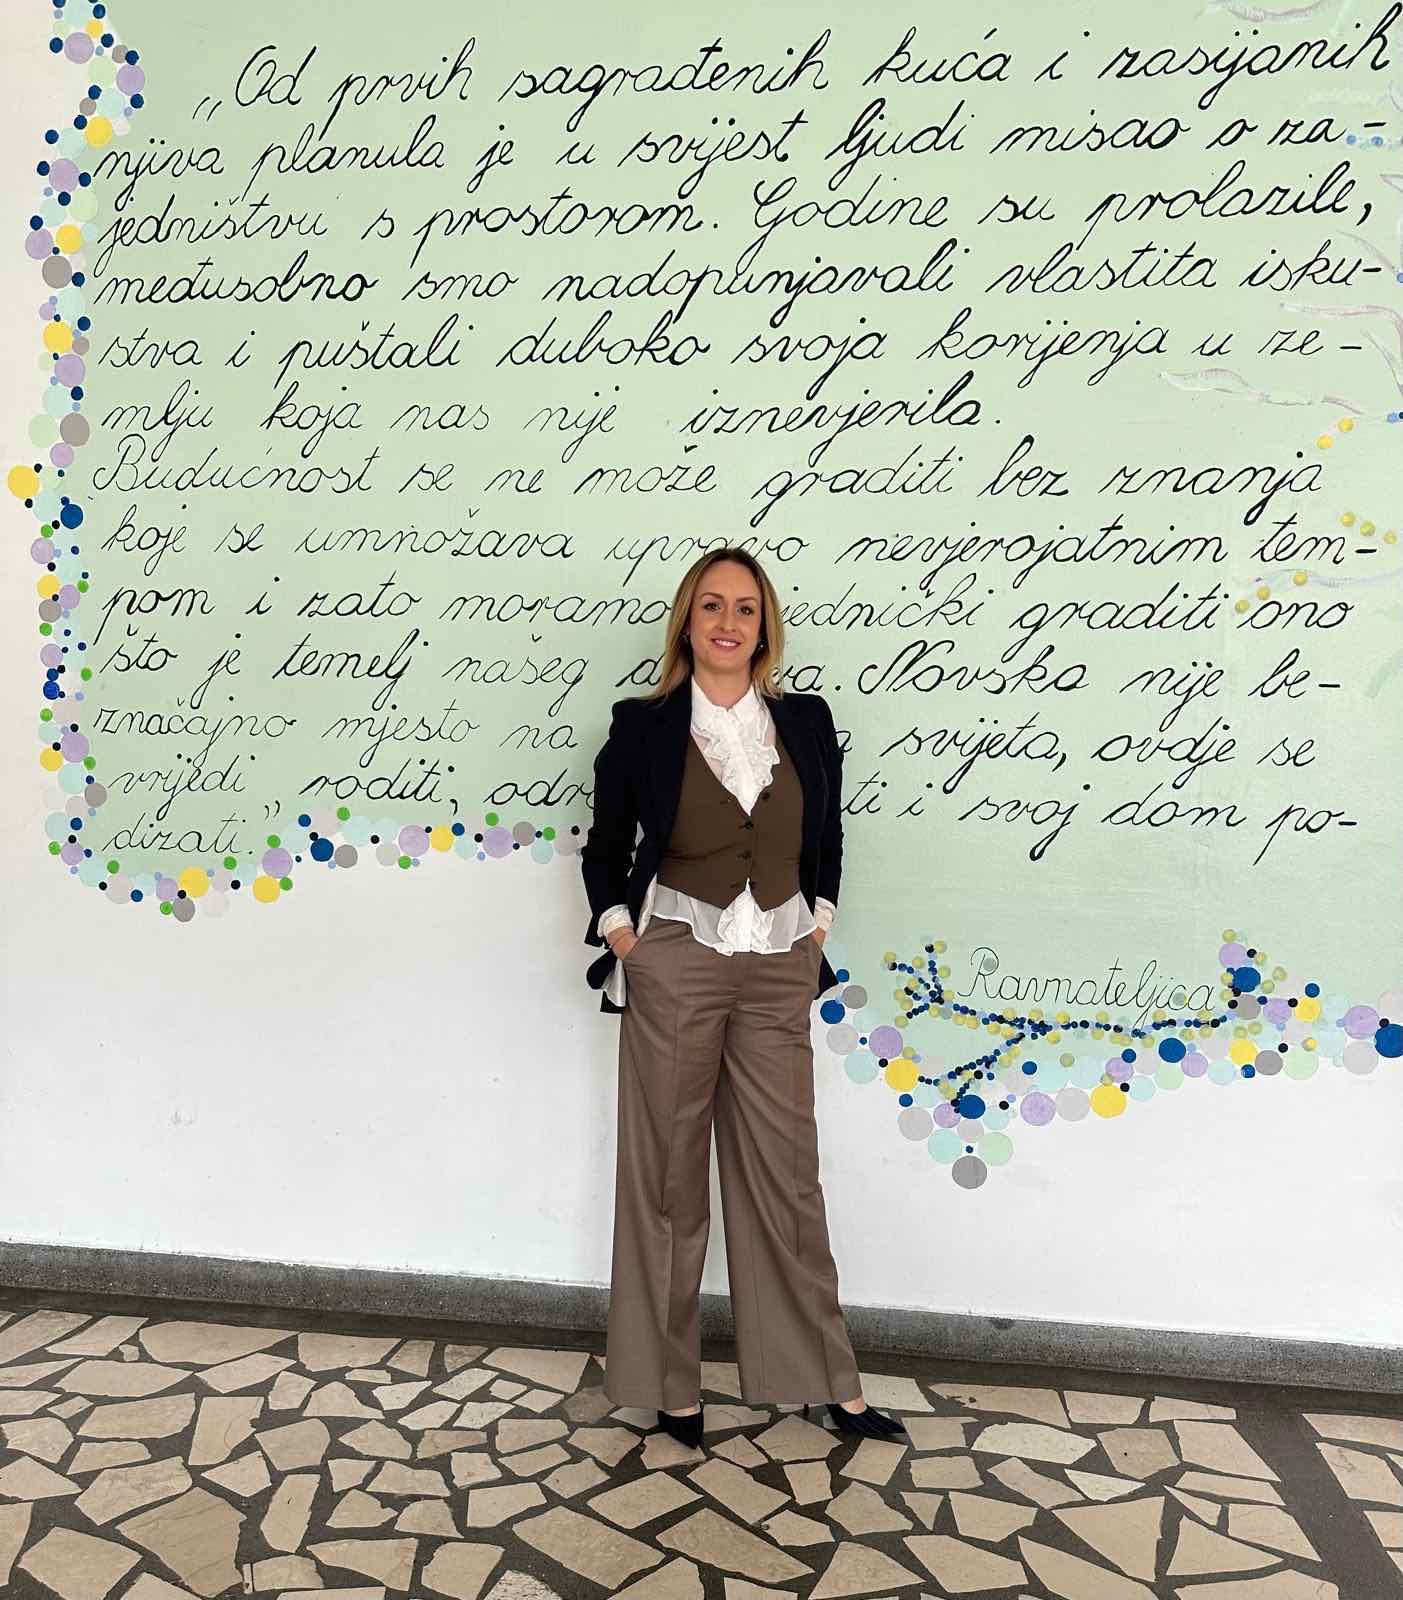 „Od prvih sagrađenih kuća i zasijanih
njiva planula je u svijest ljudi misao o za-
jedništvu s prostorom. Godine su prolazile,
međusobno smo nadopunjavali vlastita isku-
stva i puštali duboko svoja korijenja u ze-
mlju koja nas nije iznevjerila.
Budućnost se ne može graditi bez znanja
koje se umnožava upravo nevjerojatnim tem-
pom i zato moramo jednički graditi ono
što je temelj našeg d va. Novska nije be-
značajno mjesto na svijeta, ovdje se
vrijedi roditi, odr ti i svoj dom po-
dizati.”
Ravnateljica